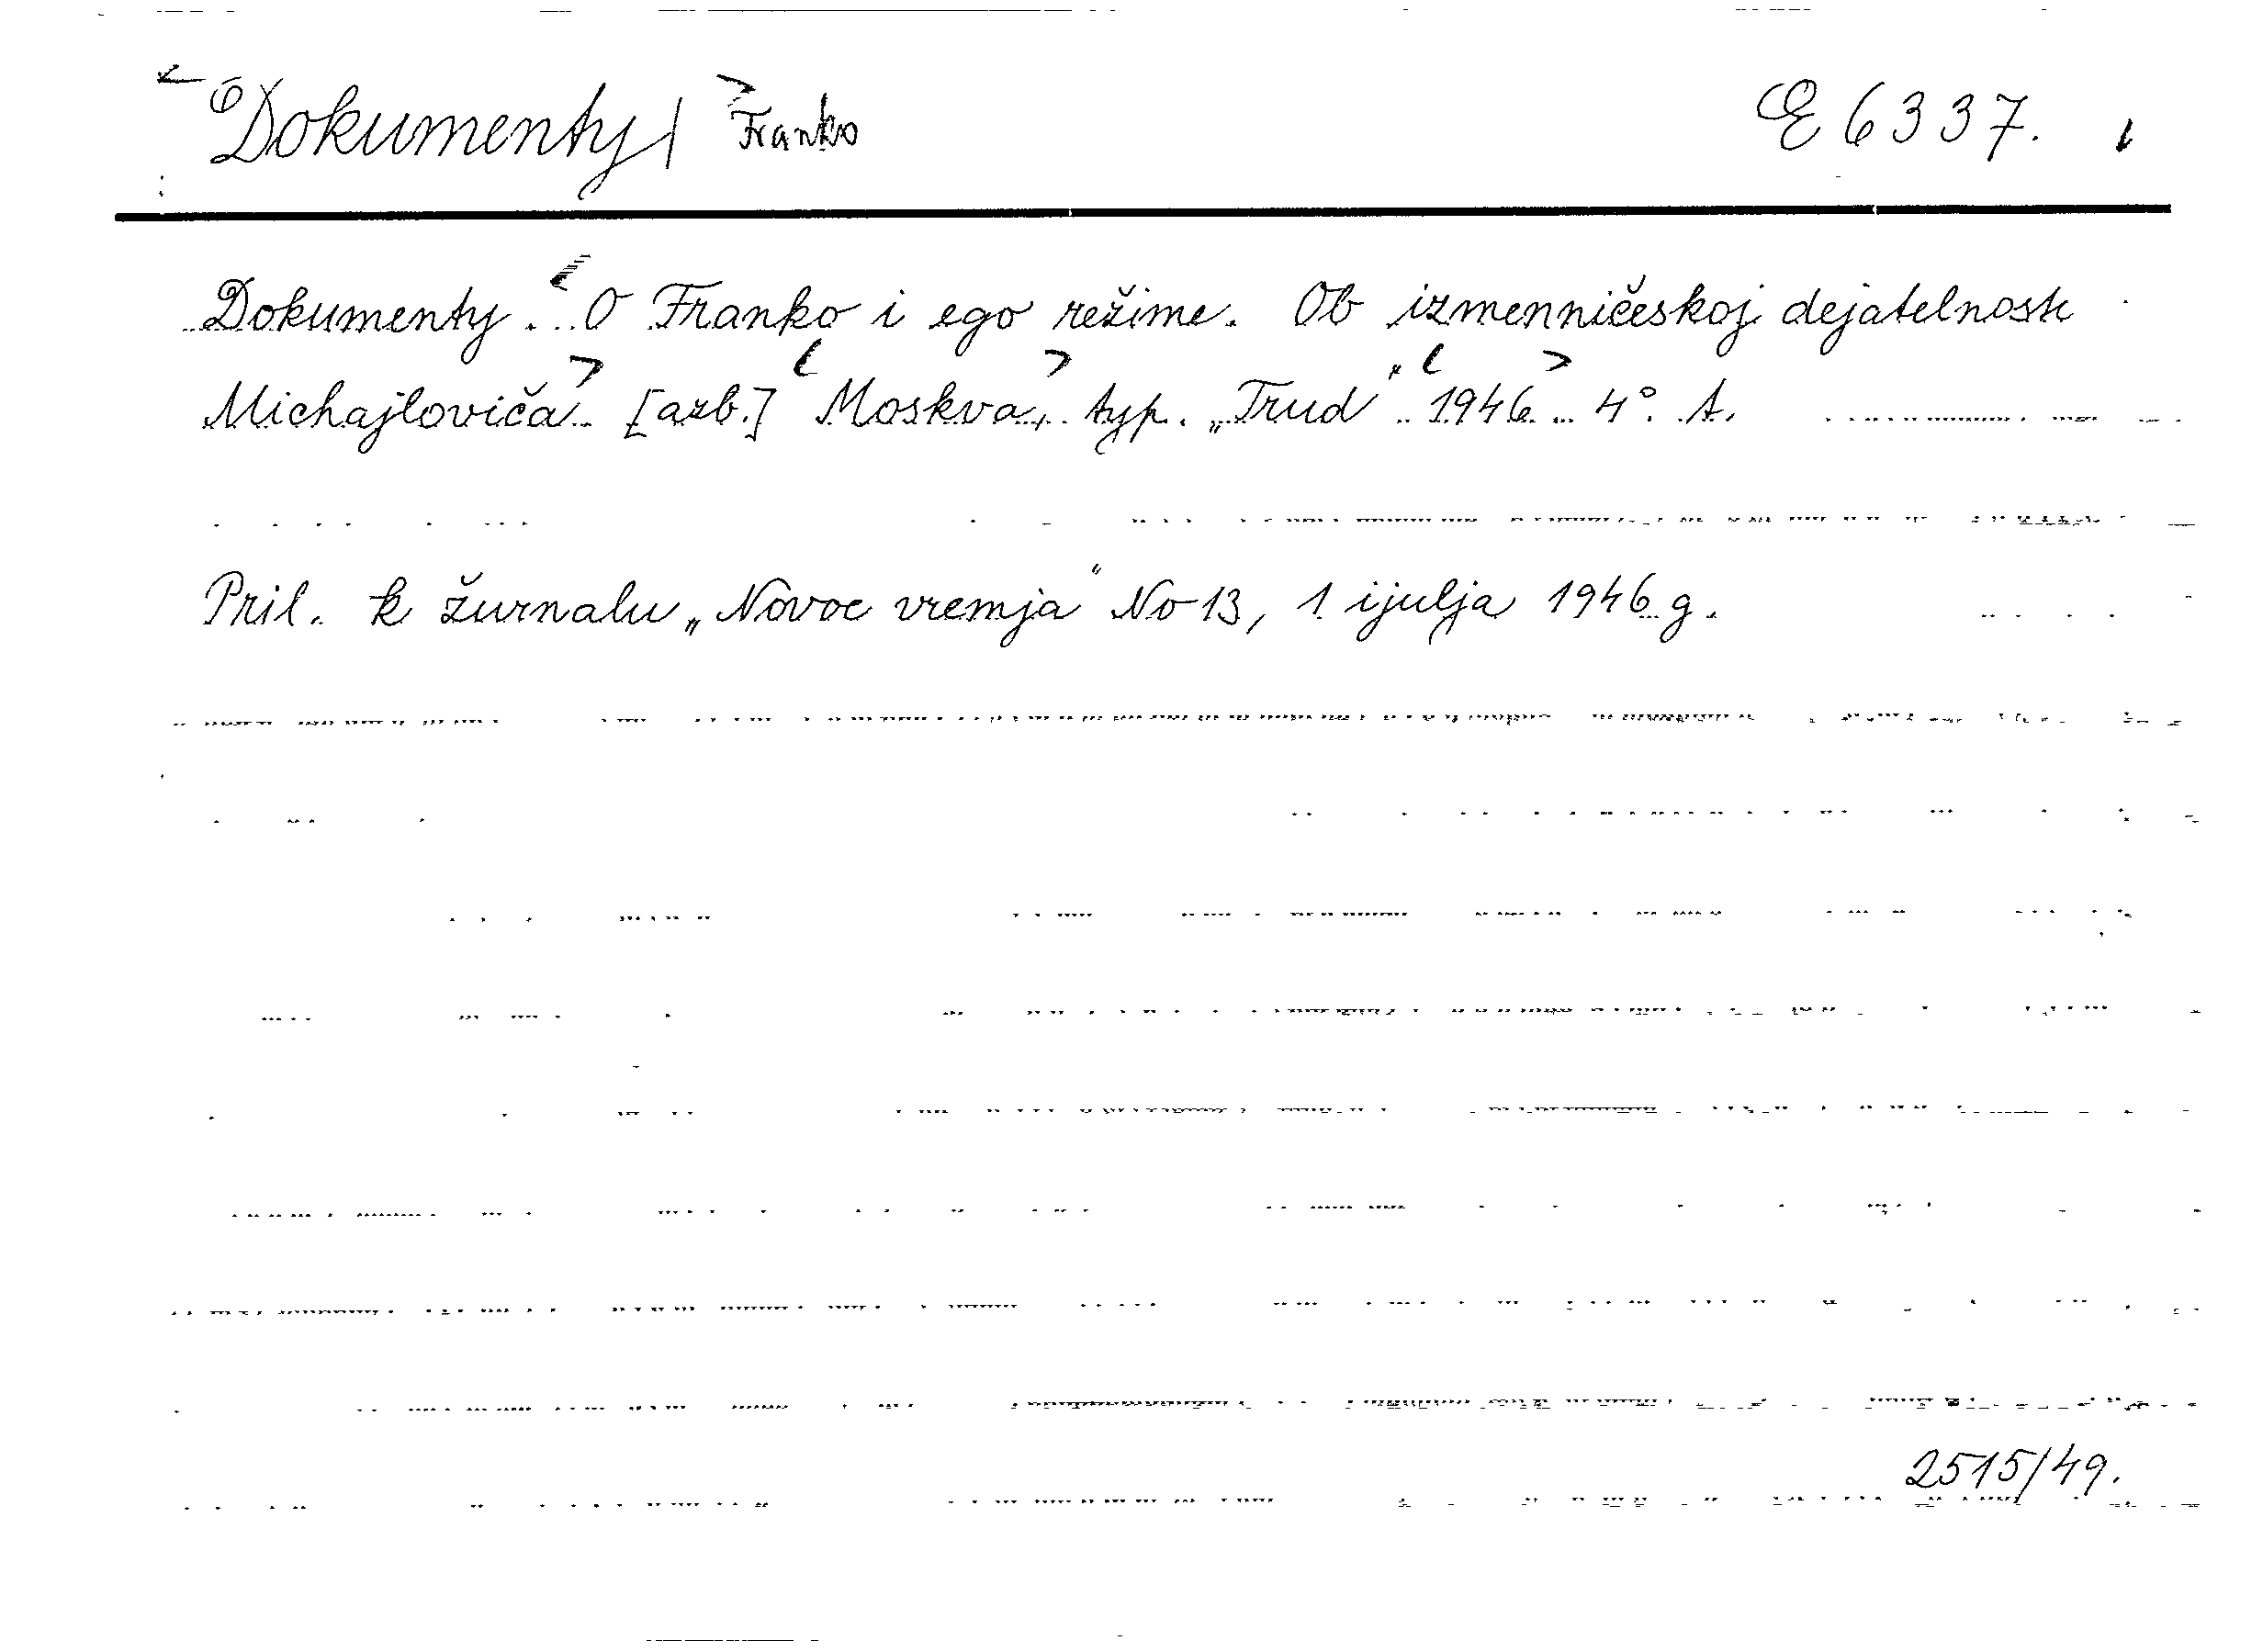 Dokumenty | Franko E 6337.
Dokumenty. O Franko i ego režime. Ob izmenničeskoj dejatelnosti
Michajloviča. [azb.] Moskva, typ. „Trud“ 1946. 4°. A.
Pril. k žurnalu „Novoe vremja“ No 13, 1 ijulja 1946 g.
2515/49.